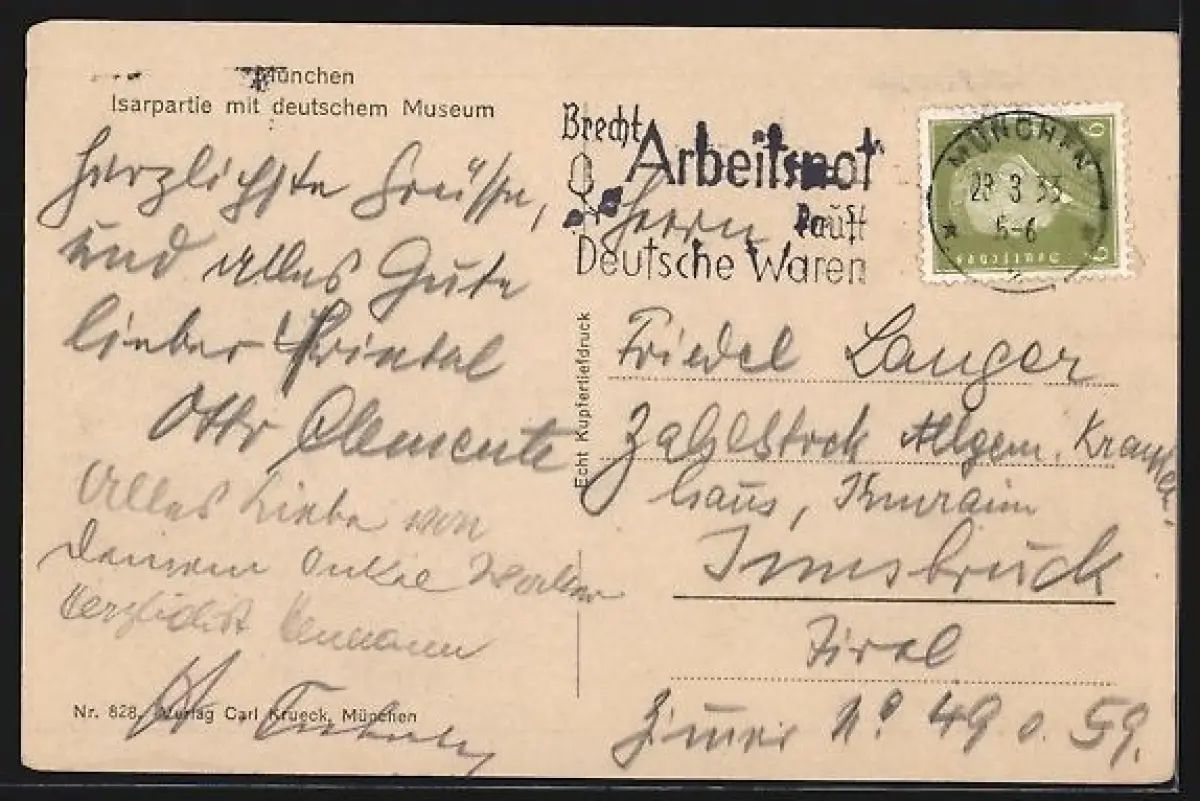 München
Isarpartie mit deutschem Museum
Herzlichste Grüsse,
und alles Gute
lieber
Otto Clemente
Alles Liebe von
Deinem Onkel
Herzlichst
Nr. 828. Verlag Carl Krueck, München
Echt Kupfertiefdruck
Brecht
Arbeitsnot
Kauft
Deutsche Waren
MÜNCHEN
28 3 33
5-6
6
6
Herrn
Friedel Langer
Allgem. Kranken
haus,
Innsbruck
Tirol
No 49 o. 59.